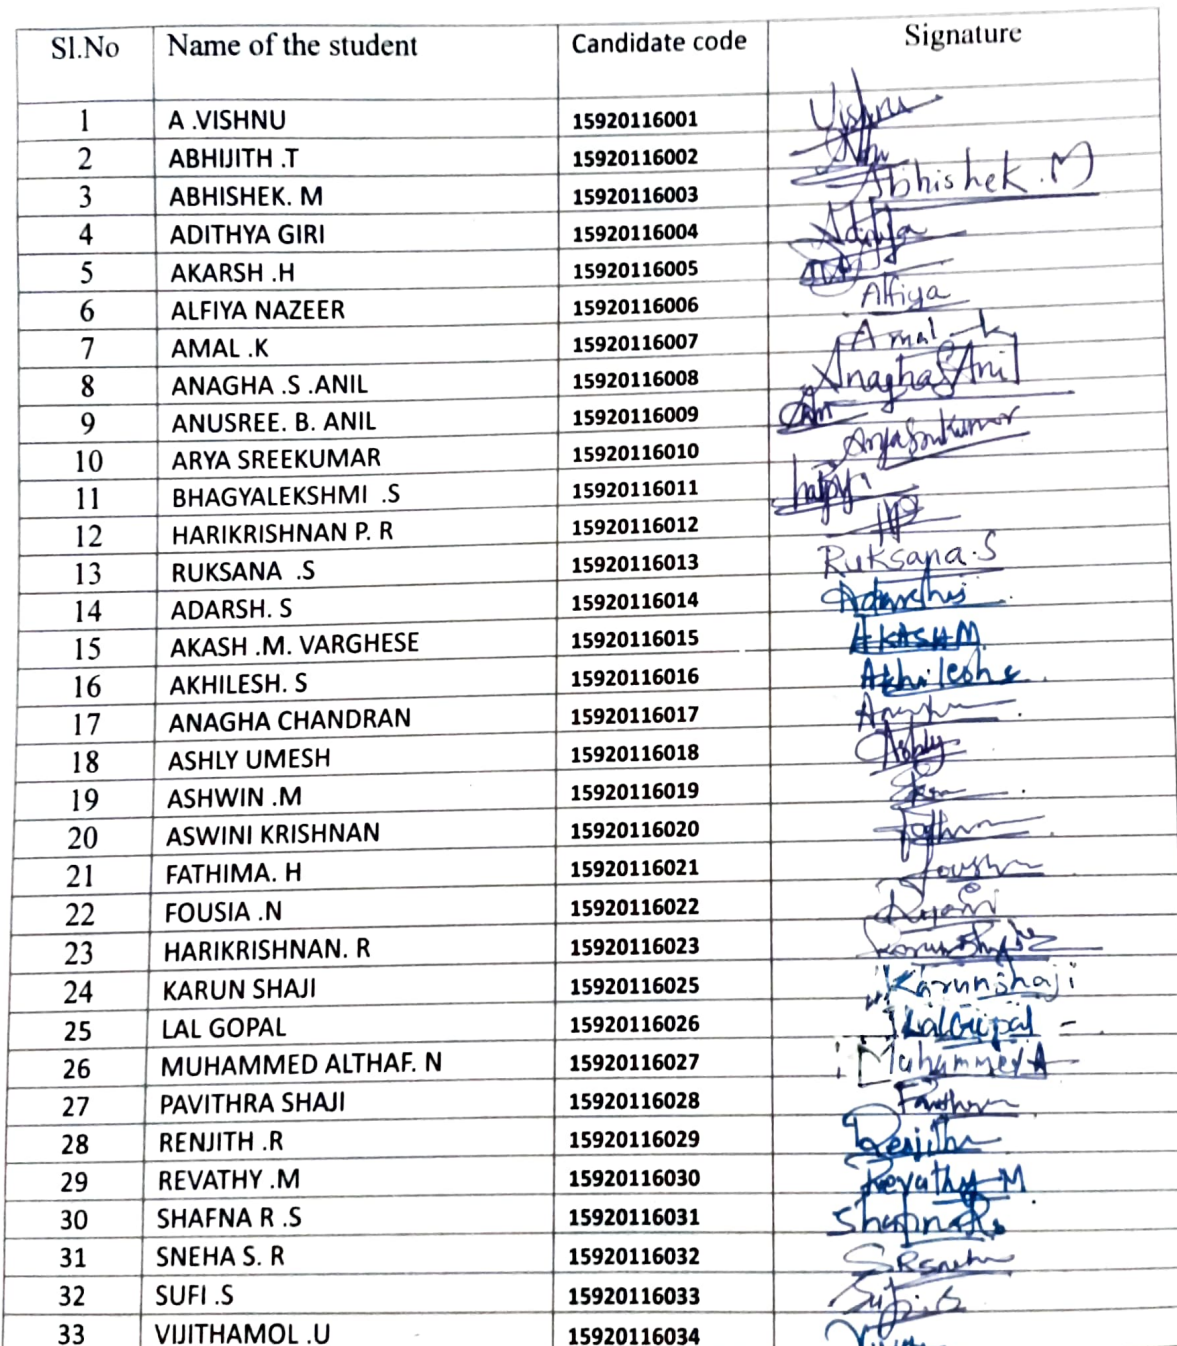 Sl.No Name of the student Candidate code Signature
1 A .VISHNU 15920116001 Vishnu
2 ABHIJITH .T 15920116002
3 ABHISHEK. M 15920116003 Abhishek .M
4 ADITHYA GIRI 15920116004 Adithya
5 AKARSH .H 15920116005
6 ALFIYA NAZEER 15920116006 Alfiya
7 AMAL .K 15920116007 Amal k
8 ANAGHA .S .ANIL 15920116008 Anagha S Anil
9 ANUSREE. B. ANIL 15920116009
10 ARYA SREEKUMAR 15920116010 Arya Sreekumar
11 BHAGYALEKSHMI .S 15920116011
12 HARIKRISHNAN P. R 15920116012
13 RUKSANA .S 15920116013 Ruksana.S
14 ADARSH. S 15920116014 Adarsh s
15 AKASH .M. VARGHESE 15920116015 AKASH M
16 AKHILESH. S 15920116016 Akhilesh s
17 ANAGHA CHANDRAN 15920116017
18 ASHLY UMESH 15920116018 Ashly
19 ASHWIN .M 15920116019
20 ASWINI KRISHNAN 15920116020
21 FATHIMA. H 15920116021
22 FOUSIA .N 15920116022
23 HARIKRISHNAN. R 15920116023
24 KARUN SHAJI 15920116025 Karunshaji
25 LAL GOPAL 15920116026 LalGopal
26 MUHAMMED ALTHAF. N 15920116027 Muhammed A
27 PAVITHRA SHAJI 15920116028
28 RENJITH .R 15920116029 Renjith
29 REVATHY .M 15920116030 Revathy M
30 SHAFNA R .S 15920116031 Shafna R.s
31 SNEHA S. R 15920116032 S R Sneha
32 SUFI .S 15920116033 Sufi.S
33 VIJITHAMOL .U 15920116034